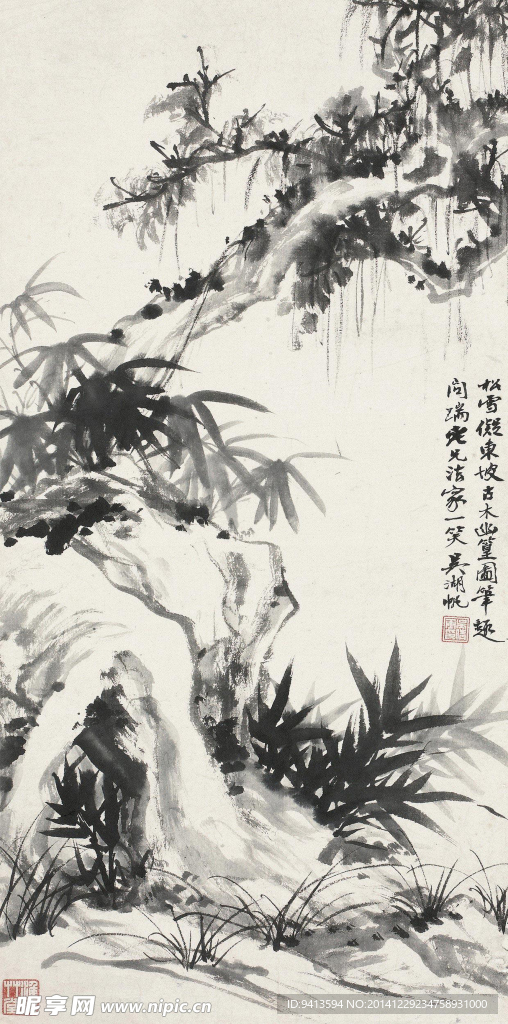 松雪儗東坡古木幽篁圖筆趣
向瑞老兄法家一笑 吳湖帆
昵享网 www.nipic.cn
ID:9413594 NO:20141229234758931000